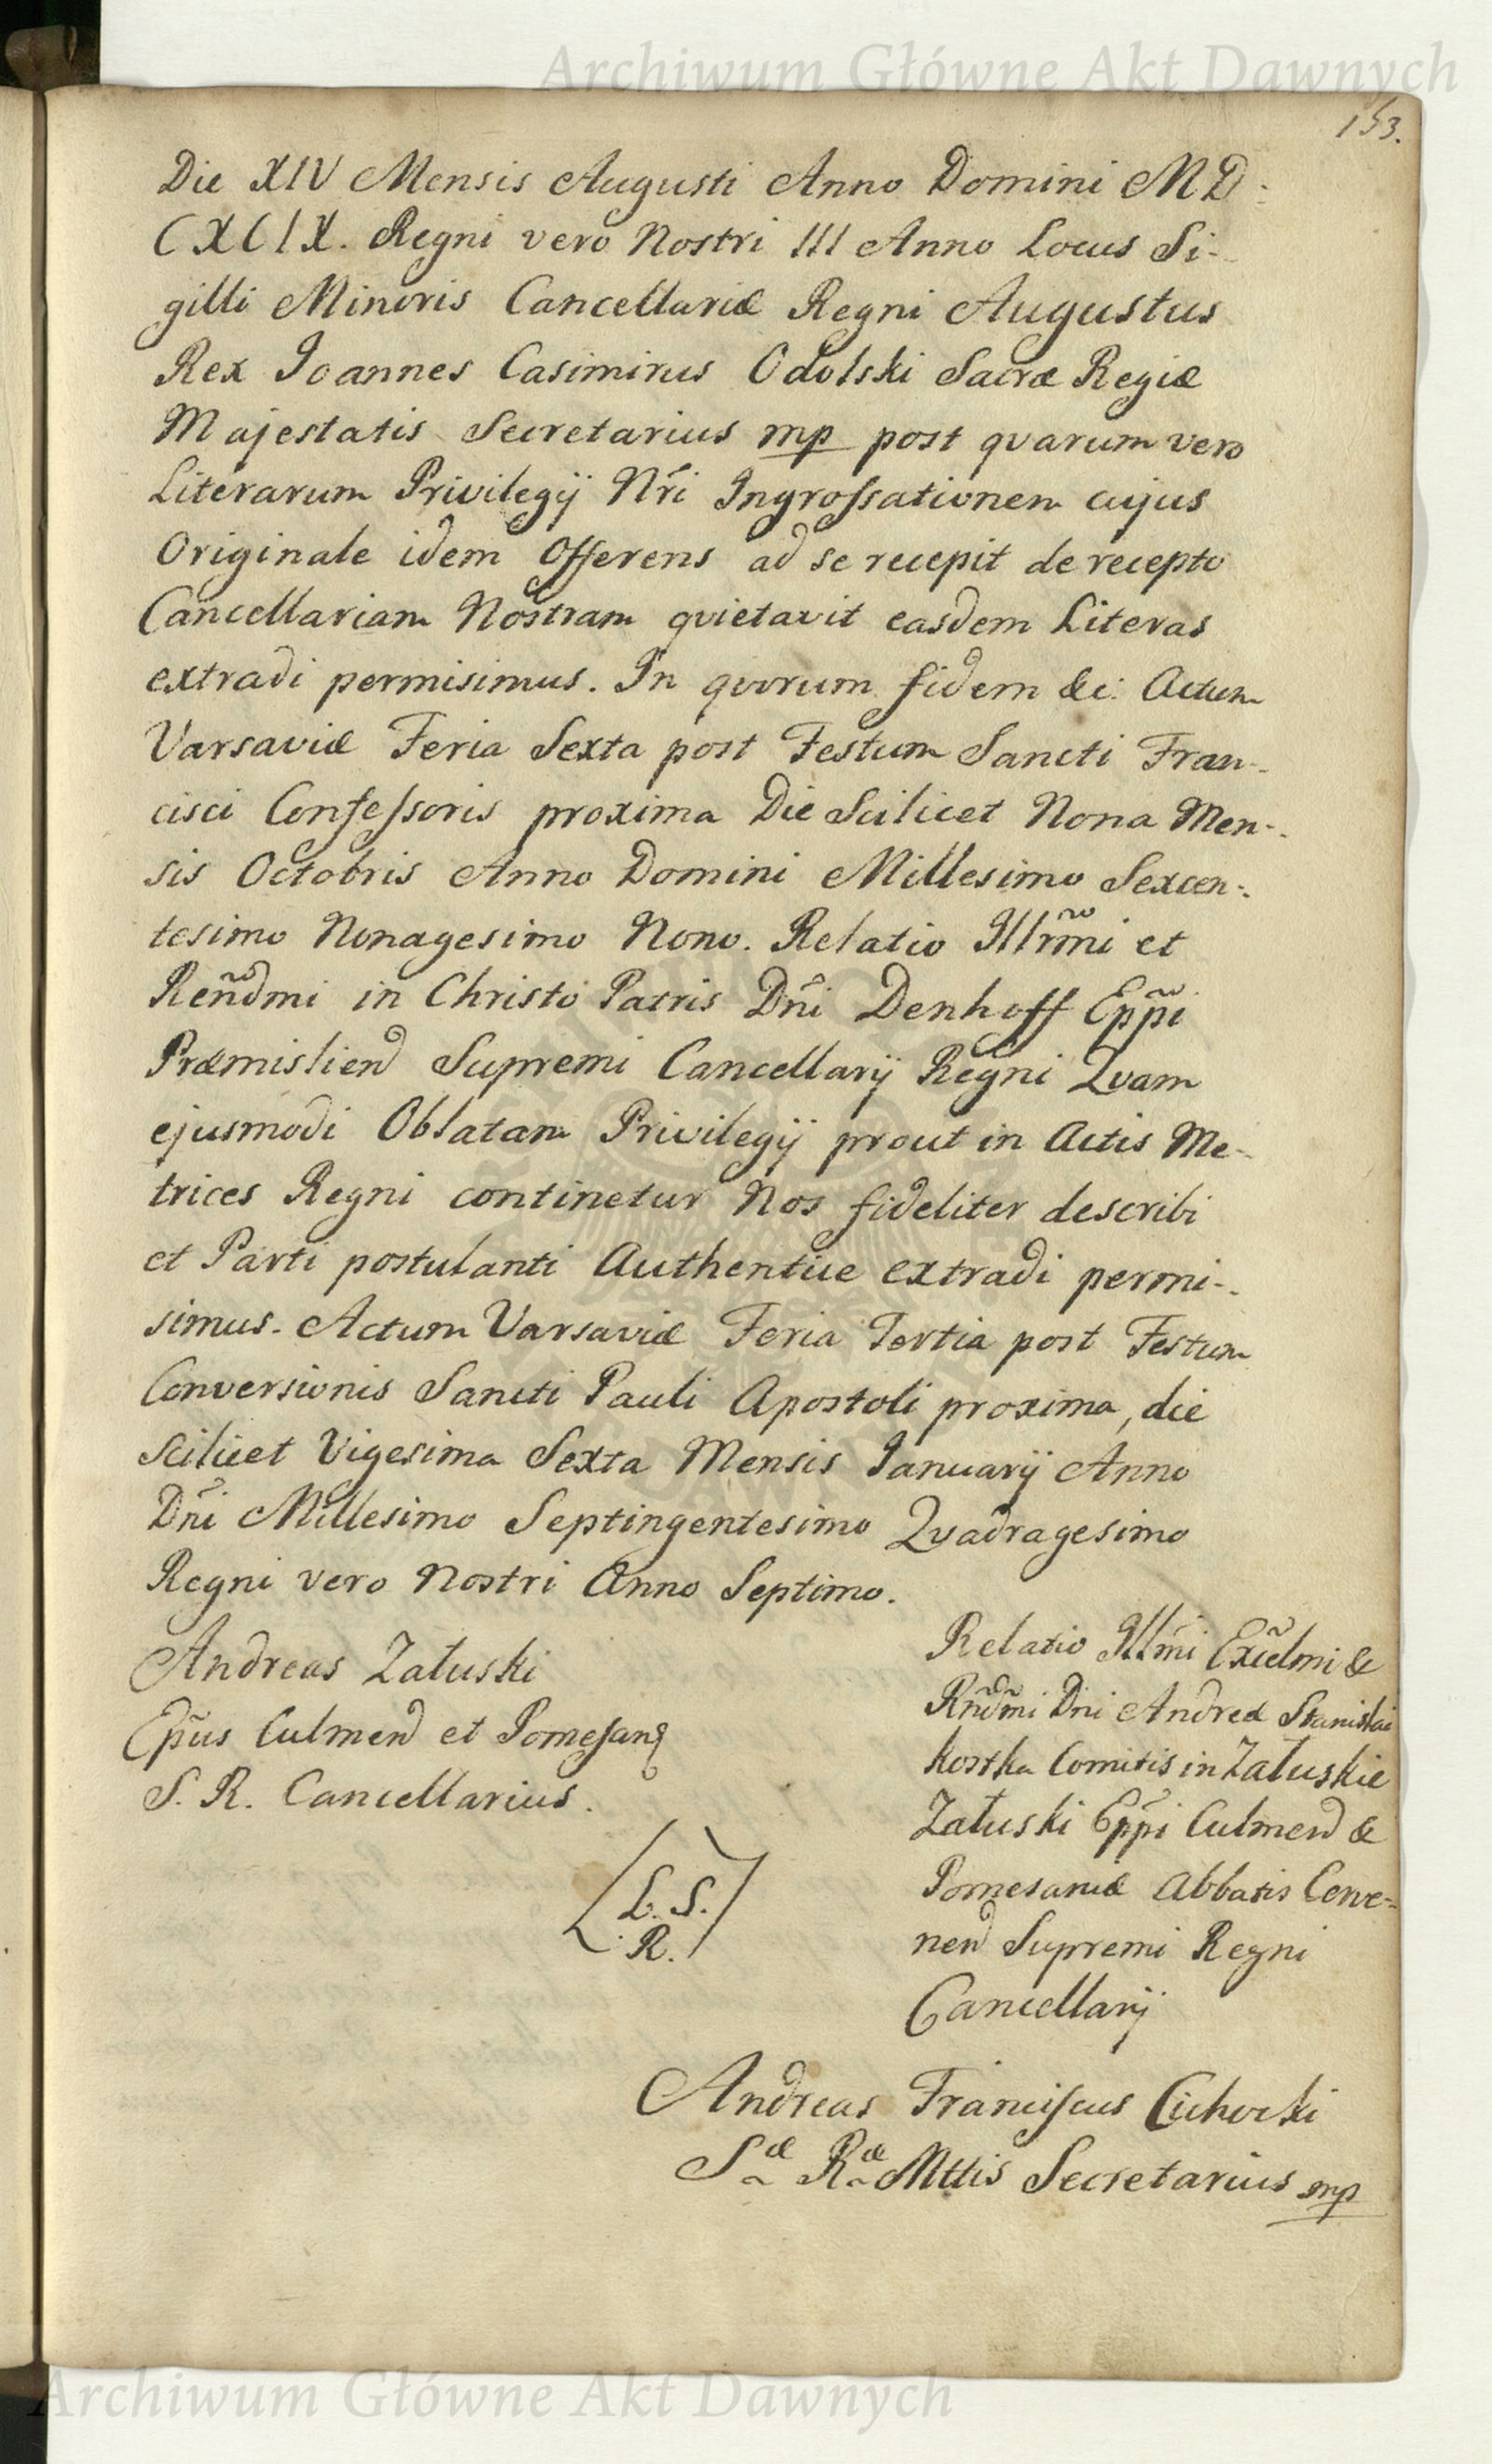 Archiwum Główne Akt Dawnych
153.
Die XIV Mensis Augusti Anno Domini MD-
CXCIX. Regni vero Nostri III Anno Locus Si-
gilli Minoris Cancellariæ Regni Augustus
Rex Joannes Casimirus Odolski Sacræ Regiæ
Majestatis Secretarius mp post qvarum vero
Literarum Privilegij Nr̃i Ingrossationem cujus
Originale idem Offerens ad se recepit de recepto
Cancellariam Nostram qvietavit easdem Literas
extradi permisimus. In qvorum fidem &c: Actum
Varsaviæ Feria Sexta post Festum Sancti Fran-
cisci Confessoris proxima Die Scilicet Nona Men-
sis Octobris Anno Domini Millesimo Sexcen-
tesimo Nonagesimo Nono. Relatio Illr̃mi et
Reñdmi in Christo Patris Dñi Denhoff Epp̃i
Præmislien̄ Supremi Cancellarij Regni Qvam
ejusmodi Oblatam Privilegij prout in Actis Me-
trices Regni continetur Nos fideliter describi
et Parti postulanti Authentice extradi permi-
simus. Actum Varsaviæ Feria Tertia post Festum
Conversionis Sancti Pauli Apostoli proxima, die
Scilicet Vigesima Sexta Mensis Januarij Anno
Dñi Millesimo Septingentesimo Qvadragesimo
Regni vero Nostri Anno Septimo.
Andreas Załuski
Ep̃us Culmen̄ et Pomesan
S. R. Cancellarius.
L. S.
R.
Relatio Illm̃i Excel̃mi &
Rñdm̃i Dni Andreæ Stanislai
Kostka Comitis in Załuskie
Załuski Epp̃i Culmen̄ &
Pomesaniæ Abbatis Cerve-
nen̄ Supremi Regni
Cancellarij
Andreas Franciscus Cichocki
Sæ Ræ Mttis Secretarius mp
Archiwum Główne Akt Dawnych